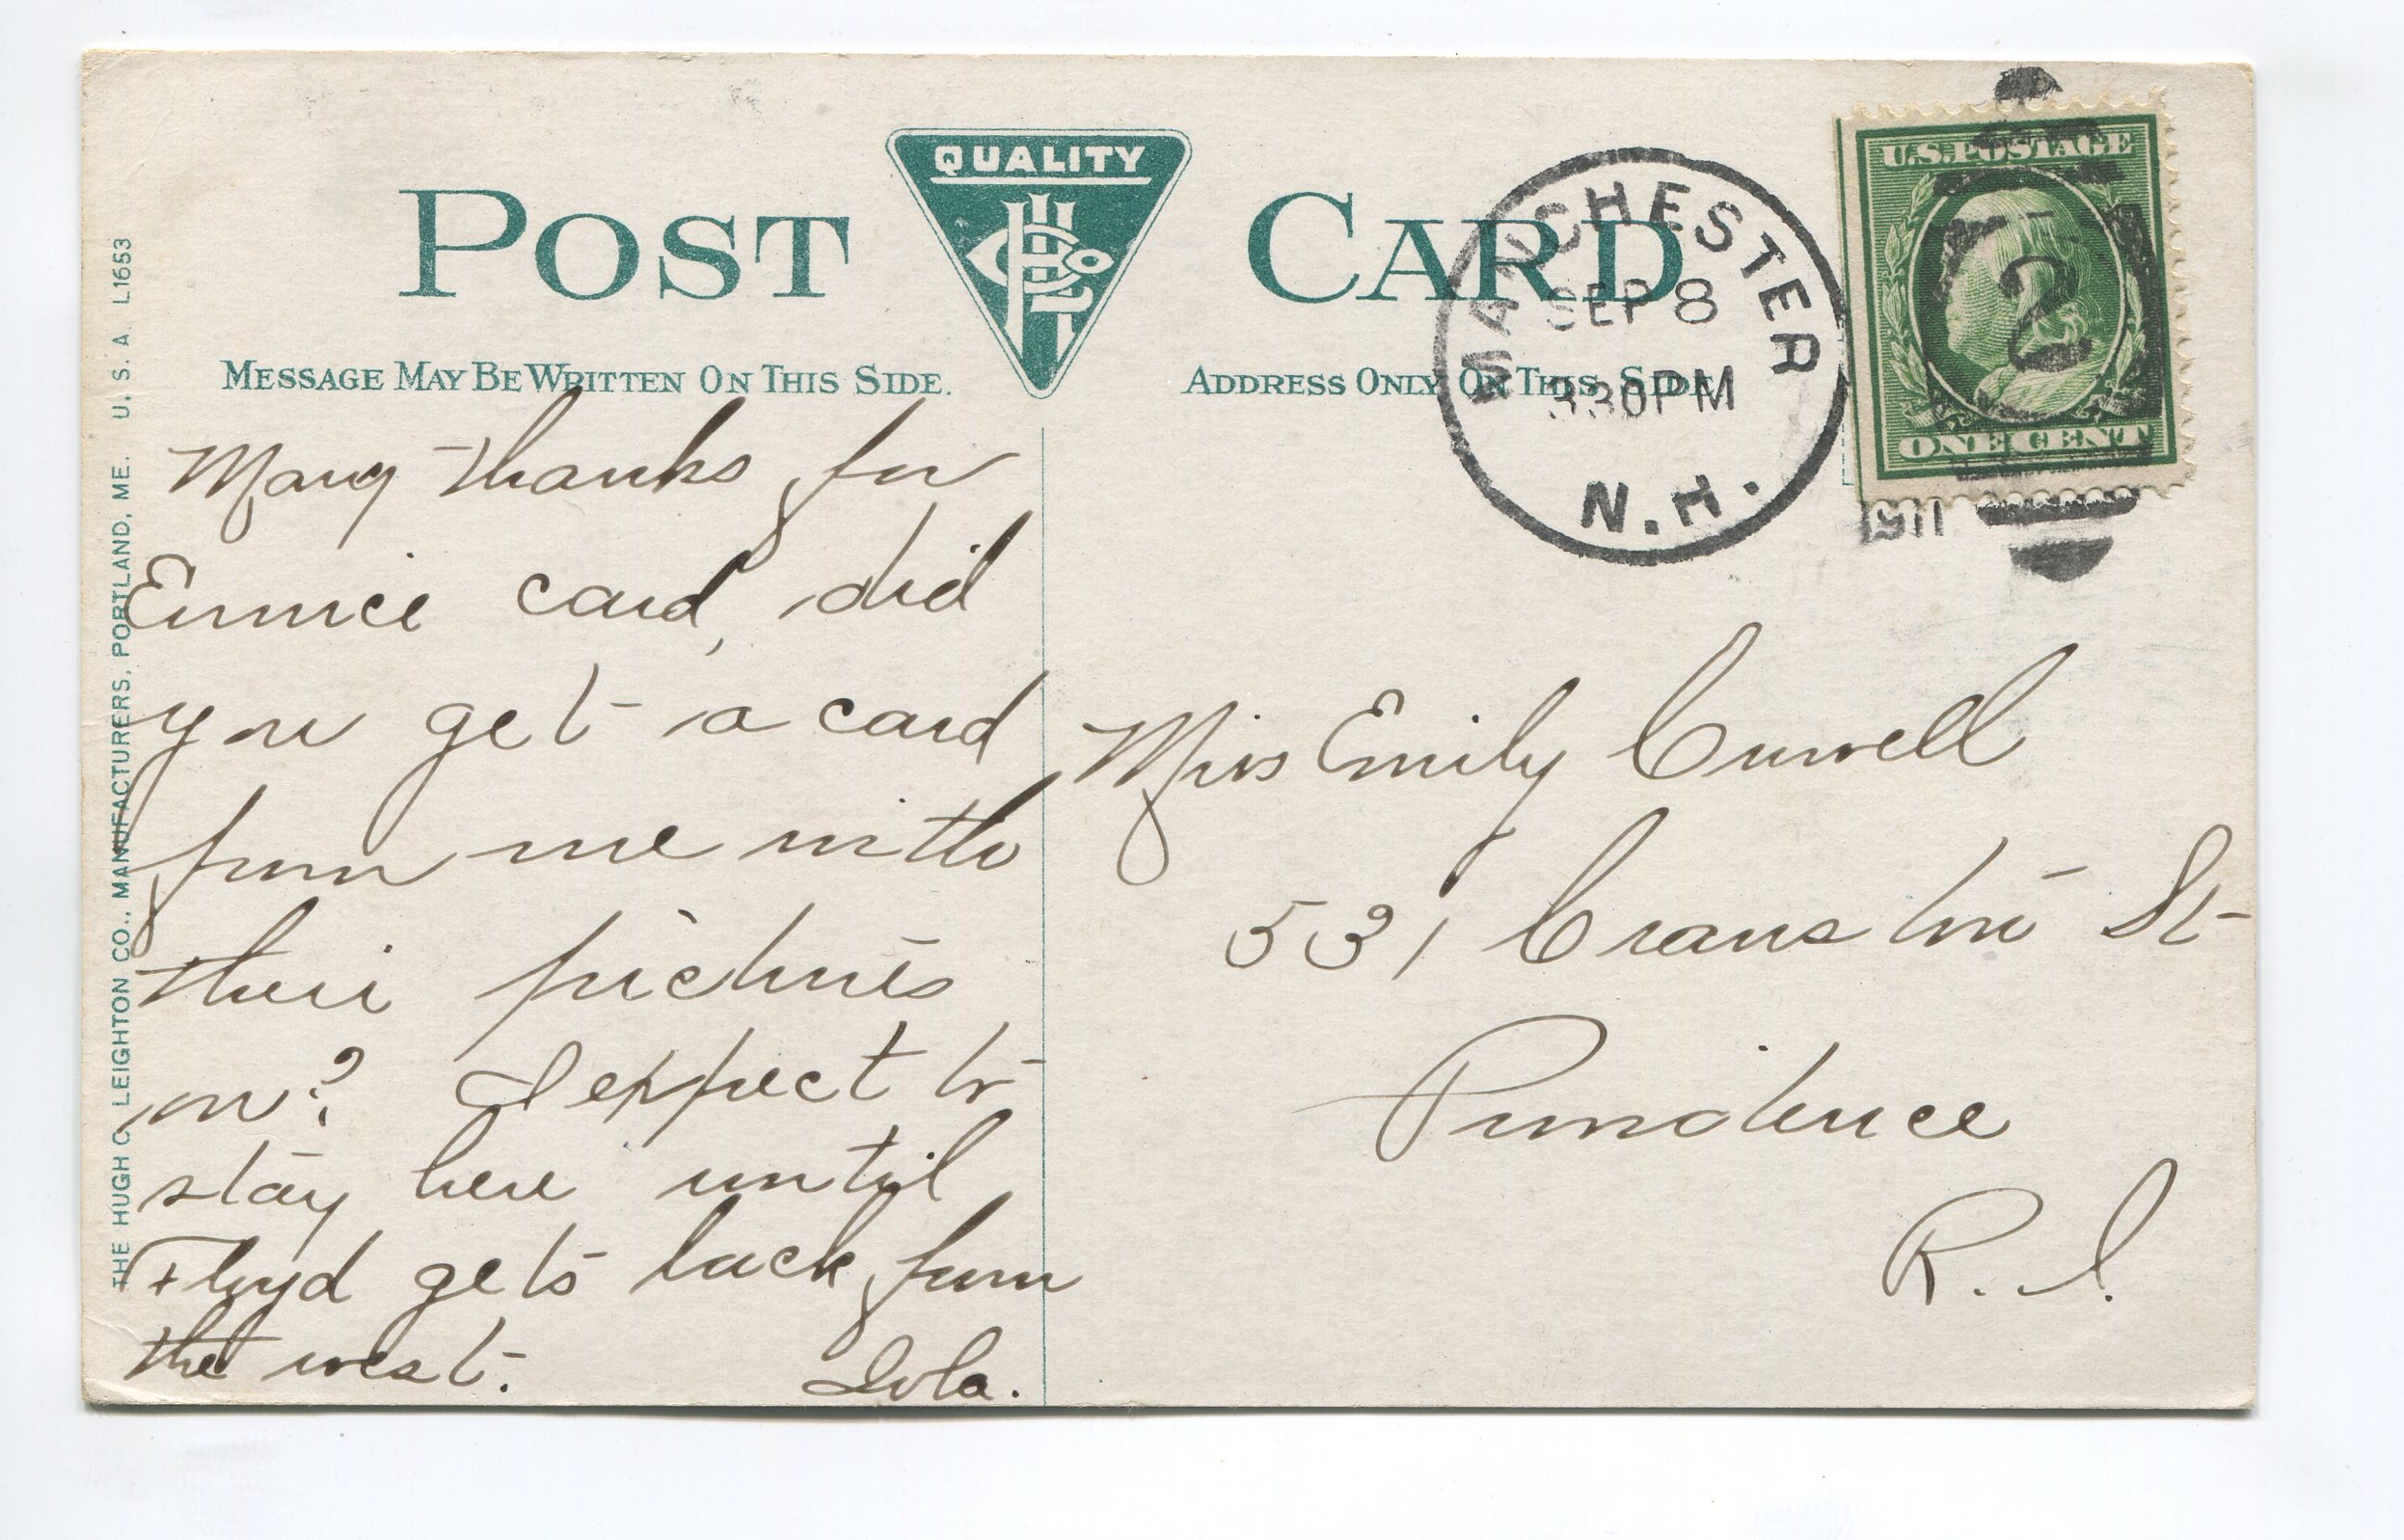 QUALITY
POST CARD
MESSAGE MAY BE WRITTEN ON THIS SIDE.
ADDRESS ONLY ON THIS SIDE
MANCHESTER
SEP 8
330PM
N.H.
U.S. POSTAGE
2
ONE CENT
THE HUGH C. LEIGHTON CO., MANUFACTURERS, PORTLAND, ME. U. S. A. L1653
Many thanks for
Eunice card, did
you get a card
from me with
their pictures
on? I expect to
stay here until
Floyd gets back from
the west.
Lola.
Miss Emily
531 Cranston St
Providence
R. I.